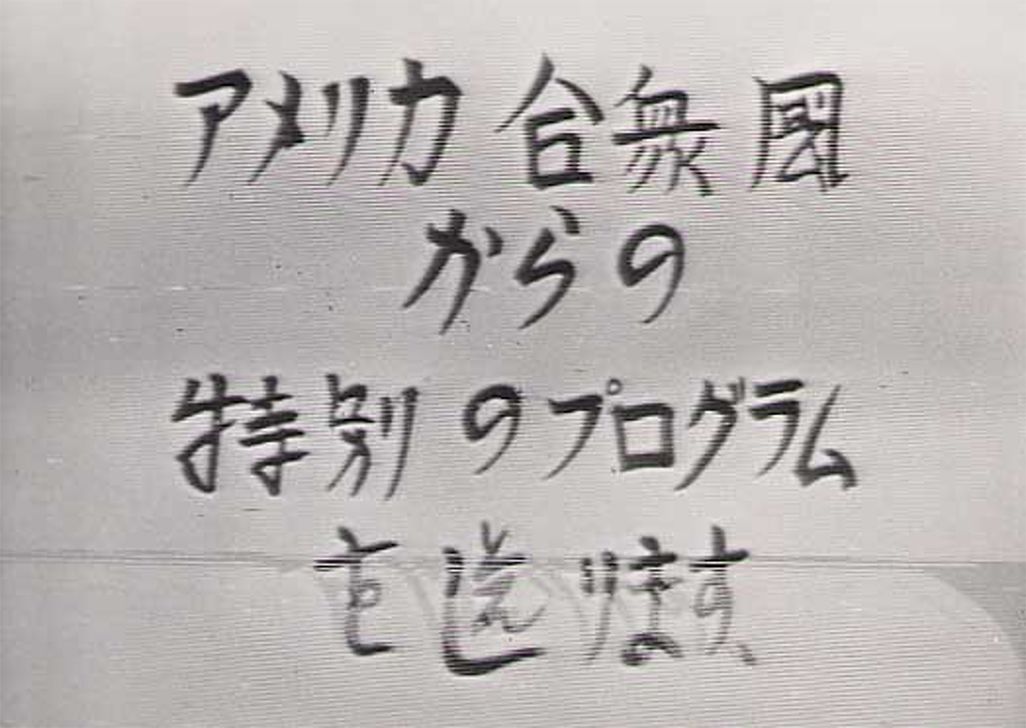 アメリカ合衆國
からの
特別のプログラム
を送ります